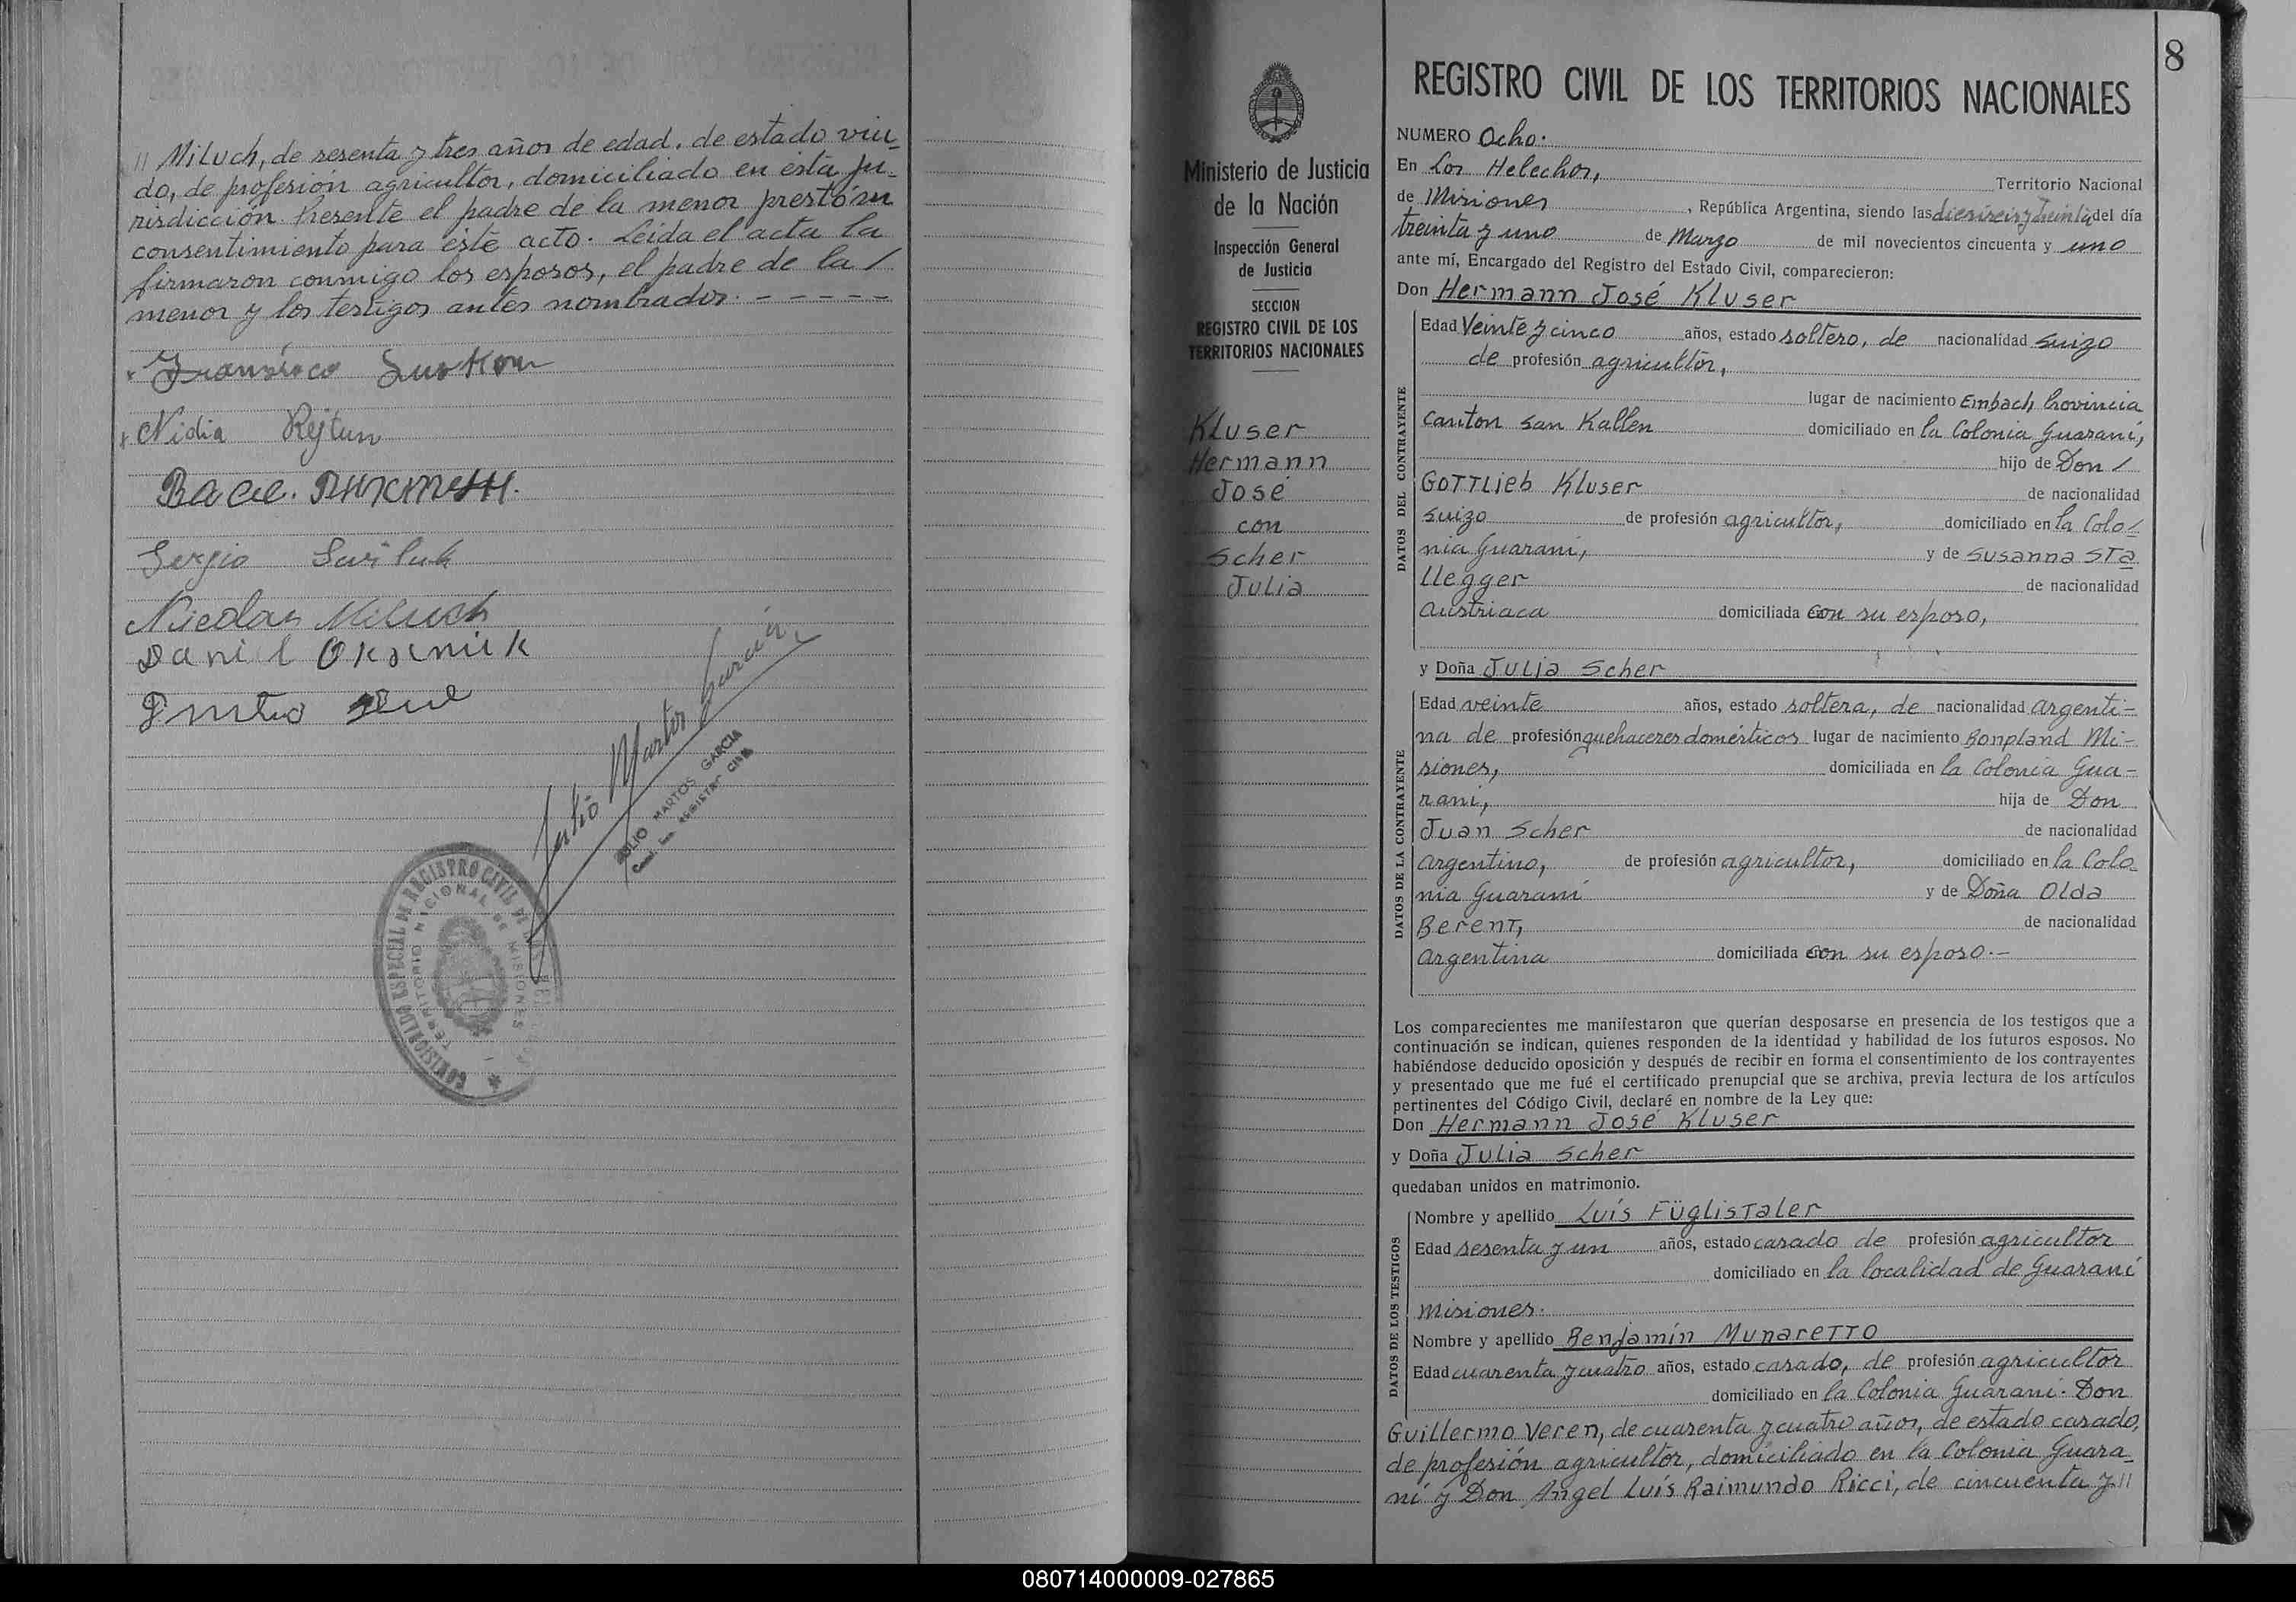 // Miluch, de sesenta y tres años de edad, de estado viu-
do, de profesión agricultor, domiciliado en esta ju-
risdicción. Presente el padre de la menor prestó su
consentimiento para este acto. Leída el acta la
firmaron conmigo los esposos, el padre de la /
menor y los testigos antes nombrados. - - - - -
Nidia Rejtun
Sergio
Nicolas Miluch
Julio Martos Garcia
JULIO MARTOS GARCIA
COMISIONADO ESPECIAL DE REGISTRO CIVIL DE
TERRITORIO NACIONAL DE MISIONES
8
Ministerio de Justicia
de la Nación
Inspección General
de Justicia
SECCION
REGISTRO CIVIL DE LOS
TERRITORIOS NACIONALES
Kluser
Hermann
José
con
Scher
Julia
REGISTRO CIVIL DE LOS TERRITORIOS NACIONALES
NUMERO Ocho.
En Los Helechos, Territorio Nacional
de Misiones, República Argentina, siendo las dieciseis y treinta del día
treinta y uno de Marzo de mil novecientos cincuenta y uno
ante mí, Encargado del Registro del Estado Civil, comparecieron:
Don Hermann José Kluser
DATOS DEL CONTRAYENTE
Edad Veinte y cinco años, estado soltero, de nacionalidad suizo
de profesión agricultor,
lugar de nacimiento Embach Provincia
canton San Kallen domiciliado en la Colonia Guaraní,
hijo de Don /
Gottlieb Kluser de nacionalidad
suizo de profesión agricultor, domiciliado en la Colo/
nia Guaraní, y de Susanna Sta
llegger de nacionalidad
austriaca domiciliada con su esposo,
y Doña Julia Scher
DATOS DE LA CONTRAYENTE
Edad veinte años, estado soltera, de nacionalidad argenti-
na de profesión quehaceres domésticos lugar de nacimiento Bonpland Mi-
siones, domiciliada en la Colonia Gua-
raní, hija de Don
Juan Scher de nacionalidad
argentino, de profesión agricultor, domiciliado en la Colo-
nia Guaraní y de Doña Olda
Berent, de nacionalidad
argentina domiciliada con su esposo.-
Los comparecientes me manifestaron que querían desposarse en presencia de los testigos que a
continuación se indican, quienes responden de la identidad y habilidad de los futuros esposos. No
habiéndose deducido oposición y después de recibir en forma el consentimiento de los contrayentes
y presentado que me fué el certificado prenupcial que se archiva, previa lectura de los artículos
pertinentes del Código Civil, declaré en nombre de la Ley que:
Don Hermann José Kluser
y Doña Julia Scher
quedaban unidos en matrimonio.
DATOS DE LOS TESTIGOS
Nombre y apellido Luís Füglistaler
Edad sesenta y un años, estado casado de profesión agricultor
domiciliado en la localidad de Guaraní
Misiones.
Nombre y apellido Benjamín Munaretto
Edad cuarenta y cuatro años, estado casado, de profesión agricultor
domiciliado en la Colonia Guaraní. Don
Guillermo Veren, de cuarenta y cuatro años, de estado casado,
de profesión agricultor, domiciliado en la Colonia Guara-
ní y Don Angel Luís Raimundo Ricci, de cincuenta y //
080714000009-027865